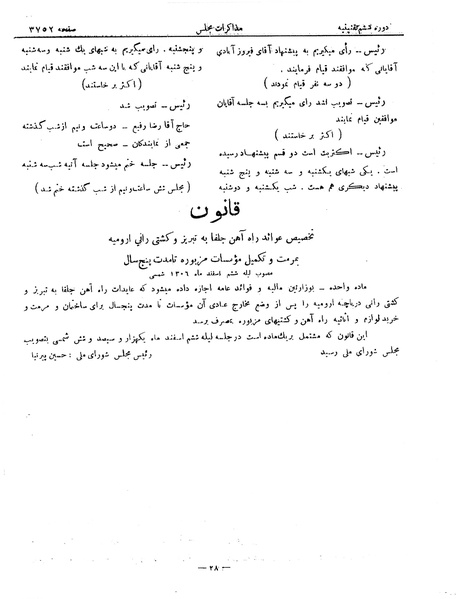 دوره ششم تقنینیه
مذاکرات مجلس
صفحه ۳۷۵۲
رئیس ــ رأی میگیریم به پیشنهاد آقای فیروز آبادی
آقایانی که موافقند قیام فرمایند.
( دو سه نفر قیام نمودند )
رئیس ــ تصویب نشد رای میگیریم بسه جلسه آقایان
موافقین قیام نمایند
( اکثر بر خاستند )
رئیس ــ اکثریت است دو قسم پیشنهاد رسیده
است . یکی شبهای یکشنبه و سه شنبه و پنج شنبه
پیشنهاد دیگری هم هست . شب یکشنبه و دوشنبه
و پنجشنبه . رای میگیریم به شبهای یك شنبه و سه شنبه
و پنج شنبه آقایانی که با این سه شب موافقند قیام نمایند
( اکثر بر خاستند )
رئیس ــ تصویب شد
حاج آقا رضا رفیع ــ دو ساعت ونیم از شب گذشته
جمعی از نمایندگان ــ صحیح است
رئیس ــ جلسه ختم میشود جلسه آتیه شب سه شنبه
( مجلس شش ساعت ونیم از شب گذشته ختم شد )
قانون
تخصیص عوائد راه آهن جلفا به تبریز و کشتی رانی ارومیه
بمرمت و تکمیل مؤسسات مزبوره تا مدت پنج سال
مصوب لیله ششم اسفند ماه ۱۳۰۶ شمسی
ماده واحده ــ بوزارتین مالیه و فوائد عامه اجازه داده میشود که عایدات راه آهن جلفا به تبریز و
کشتی رانی دریاچه ارومیه را پس از وضع مخارج عادی آن مؤسسات تا مدت پنجسال برای ساختمان و مرمت و
خرید لوازم و اثاثیه راه آهن و کشتیهای مزبوره بمصرف برسد
این قانون که مشتمل بر یك ماده است در جلسه لیله ششم اسفند ماه یکهزار و سیصد و شش شمسی بتصویب
مجلس شورای ملی رسید
رئیس مجلس شورای ملی : حسین پیرنیا
ــ ۲۸ ــ